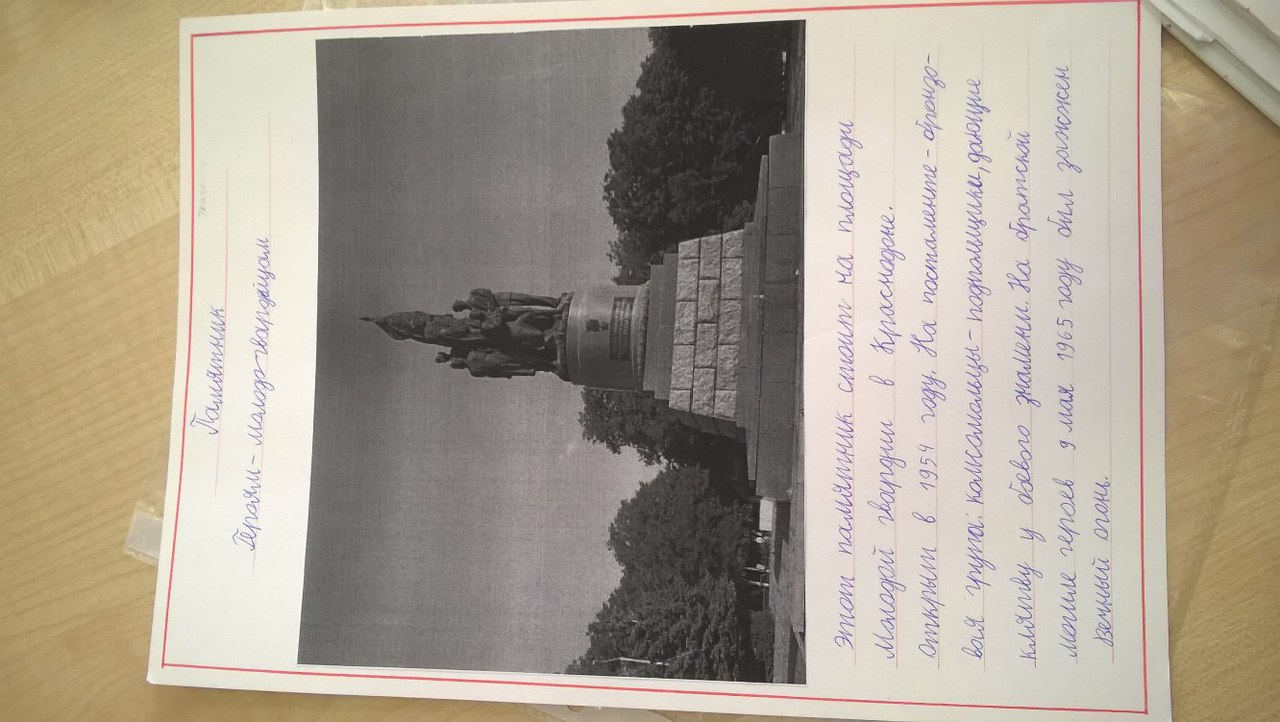 Памятник
Героям-молодогвардейцам
Этот памятник стоит на площади
Молодой гвардии в Краснодоне.
Открыт в 1954 году. На постаменте - бронзо-
вая група: комсомольцы - подпольщики, дающие
клятву у боевого знамени. На братской
могиле героев 9 мая 1965 году был зажжен
Вечный огонь.